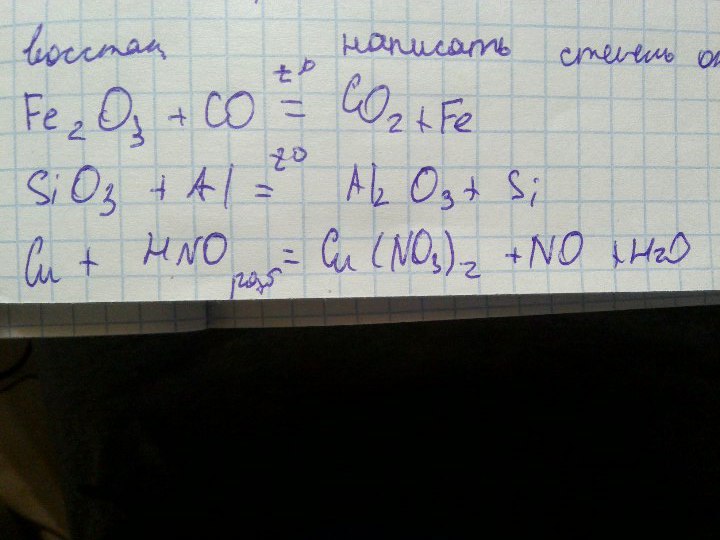 восстан написать степень ок
Fe2O3 + CO t° = CO2 + Fe
SiO3 + Al t° = Al2O3 + Si
Cu + HNO разб = Cu(NO3)2 + NO + H2O